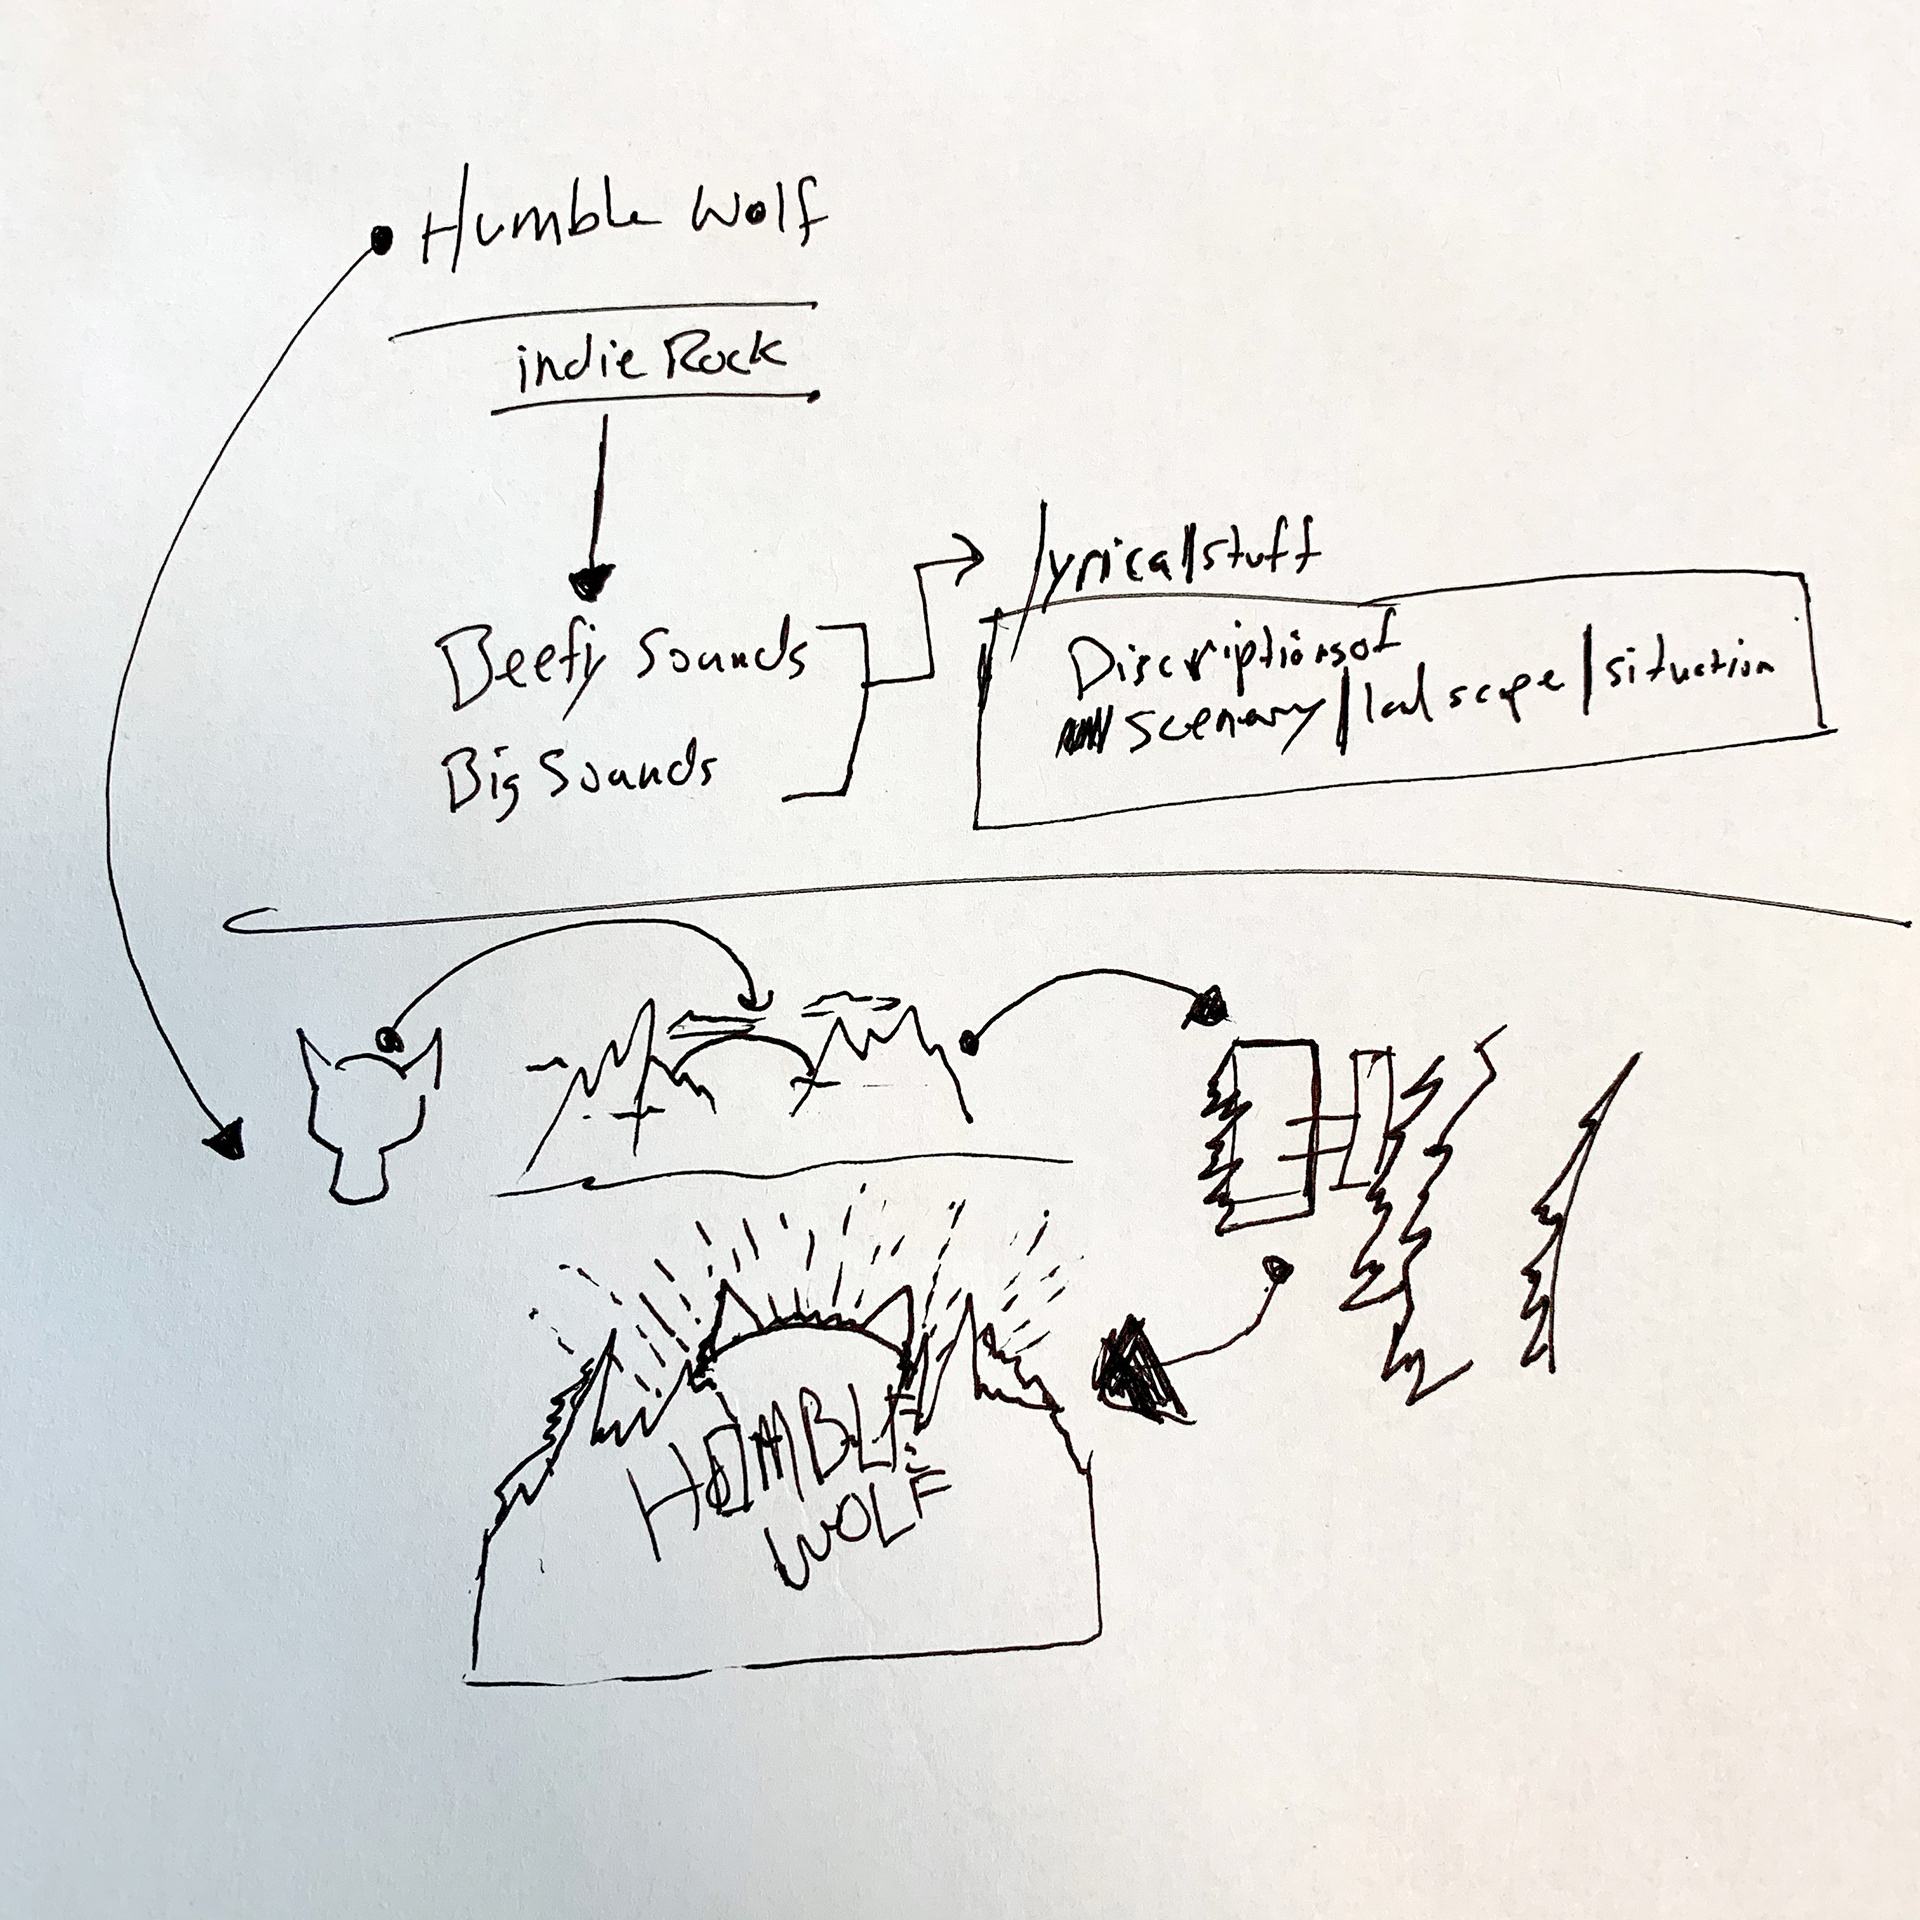 Humble Wolf
indie Rock
Beefy Sounds
Big Sounds
lyrical stuff
Discriptions of
scenary/landscape/situation
HUMBLE
WOLF